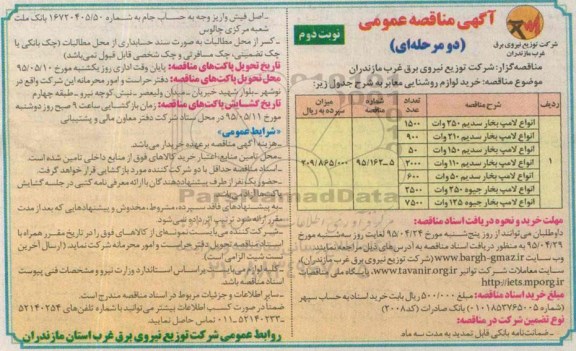 آگهی مناقصه عمومی
(دو مرحله‌ای)
نوبت دوم
شرکت توزیع نیروی برق
غرب مازندران
مناقصه‌گزار: شرکت توزیع نیروی برق غرب مازندران
موضوع مناقصه: خرید لوازم روشنایی معابر به شرح جدول زیر:
ردیف | شرح مناقصه | تعداد عدد | شماره مناقصه | میزان سپرده به ریال
۱ | انواع لامپ بخار سدیم ۲۵۰ وات | ۱۵۰۰ | ۵_۹۵/۱۶۲ | ۳۰۹/۸۶۵/۰۰۰
انواع لامپ بخار سدیم ۲۱۰ وات | ۹۰۰
انواع لامپ بخار سدیم ۱۵۰ وات | ۵۰
انواع لامپ بخار سدیم ۱۱۰ وات | ۳۰۰۰
انواع لامپ بخار سدیم ۵۰ وات | ۶۰۰
انواع لامپ بخار جیوه ۲۵۰ وات | ۲۵۰۰
انواع لامپ بخار جیوه ۱۲۵ وات | ۷۵۰۰
مهلت خرید و نحوه دریافت اسناد مناقصه:
داوطلبان می‌توانند از روز پنج‌شنبه مورخ ۹۵/۰۴/۲۴ لغایت روز سه‌شنبه مورخ
۹۵/۰۴/۲۹ به منظور دریافت اسناد مناقصه به آدرس‌های ذیل مراجعه نمایند:
وب سایت www.bargh-gmaz.ir (شرکت توزیع نیروی برق غرب مازندران)،
سایت معاملات شرکت توانیر www.tavanir.org.ir، پایگاه ملی مناقصات
http://iets.mporg.ir
مبلغ خرید اسناد مناقصه: مبلغ ۵۰۰/۰۰۰ ریال بابت خرید اسناد به حساب سپهر
شماره ۰۱۰۱۸۵۳۷۶۵۰۰۵ بانک صادرات (کد ۲۰۰۸)
نوع تضمین شرکت در مناقصه:
_ ضمانت‌نامه بانکی قابل تمدید به مدت سه ماه.
_ اصل فیش واریز وجه به حساب جام به شماره ۱۶۷۲۰۴۰۵/۵۰ بانک ملت
شعبه مرکزی چالوس
_ کسر از محل مطالبات به صورت سند حسابداری از محل مطالبات (چک بانکی یا
چک تضمینی، چک مسافرتی و چک شخصی قابل قبول نمی‌باشد)
تاریخ تحویل پاکت‌های مناقصه: پایان وقت اداری روز یکشنبه مورخ ۹۵/۰۵/۱۰
محل تحویل پاکت‌های مناقصه: دفتر حراست و امور محرمانه این شرکت واقع در
نوشهر_بلوار شهید خیریان_میدان ولیعصر_نبش کوچه نیرو_طبقه چهارم
تاریخ گشایش پاکت‌های مناقصه: زمان بازگشایی ساعت ۹ صبح روز دوشنبه
مورخ ۹۵/۰۵/۱۱ در محل ستاد شرکت دفتر معاون مالی و پشتیبانی
«شرایط عمومی»
_هزینه آگهی مناقصه برعهده خریدار می‌باشد.
_محل تامین منابع، اعتبار خرید کالاهای فوق از منابع داخلی تامین شده است.
_اسناد مناقصه حداقل با دو شرکت کننده مورد بازگشایی قرار خواهد گرفت.
_حضور یک نفر از طرف پیشنهاددهندگان با ارائه معرفی‌نامه کتبی در جلسه گشایش
پاکت‌ها
_به پیشنهادهای فاقد سپرده، مشروط، مخدوش و پیشنهادهایی که بعد از مدت
مقرر ارائه شود ترتیب اثر داده نمی‌شود.
_شرکت کننده می‌بایست نمونه‌ای از کالاهای فوق را در تاریخ مقرر همراه با
اسناد مناقصه تحویل دفتر حراست و امور محرمانه شرکت نماید. (ارسال آخرین
لیست ثبت الزامی است)
_کلیه لوازم می‌بایست براساس استاندارد وزارت نیرو و مشخصات فنی پیوست
اسناد مناقصه باشد.
_سایر اطلاعات و جزئیات مربوط در اسناد مناقصه مندرج است.
ضمناً در صورت کسب اطلاعات بیشتر می‌توانید با شماره تلفن‌های ۵۲۱۴۰۲۵۴
_۵۲۱۴۰۲۳۳_۰۱۱ تماس حاصل نمایید.
روابط عمومی شرکت توزیع نیروی برق غرب استان مازندران
ParsNamadData